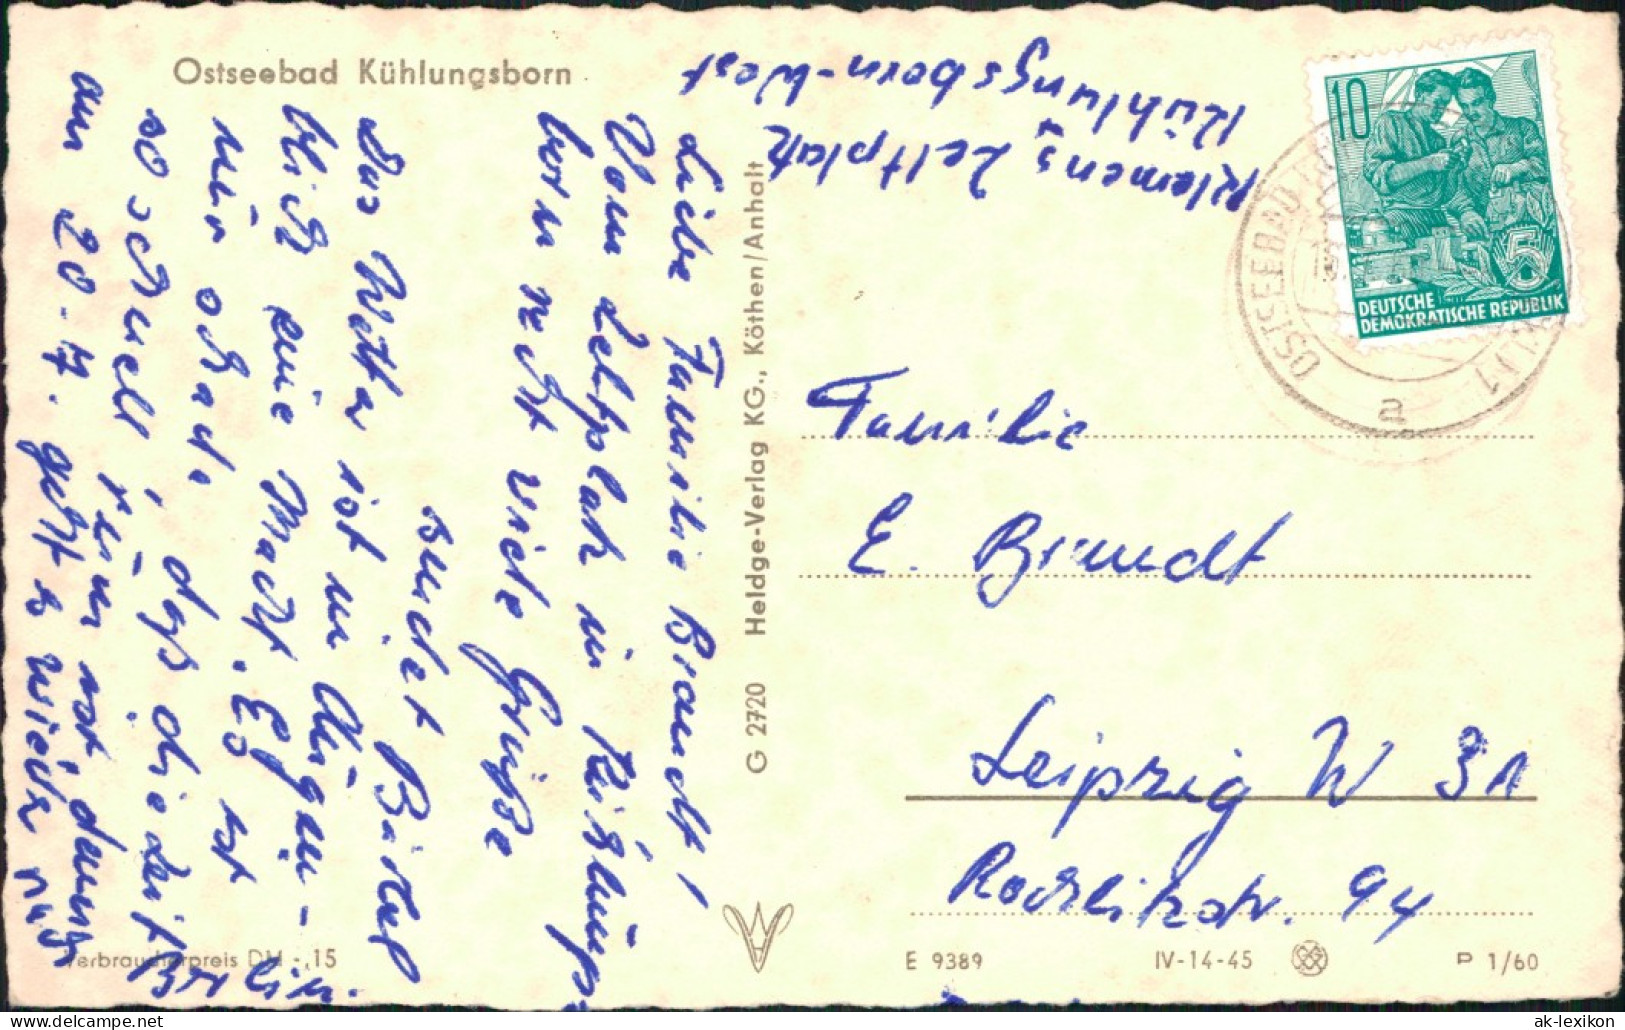 Ostseebad Kühlungsborn
Klemens, Zeltplatz
Kühlungsborn-West
Liebe Familie Brandt!
Vom Zeltplatz in Kühlungs-
born recht viele Grüße
sendet
Das Wetter ist im Augen-
blick eine Macht. Es ist
nur schade, daß die Zeit
so schnell rum ist, denn
am 20.7. geht es wieder nach
Berlin.
G 2720 Heldge-Verlag KG., Köthen/Anhalt
10
5
DEUTSCHE
DEMOKRATISCHE REPUBLIK
OSTSEEBAD
a
Familie
E. Brandt
Leipzig W 31
Rochlitzstr. 94
Verbraucherpreis DM -,15
E 9389
IV-14-45
P 1/60
ak-lexikon